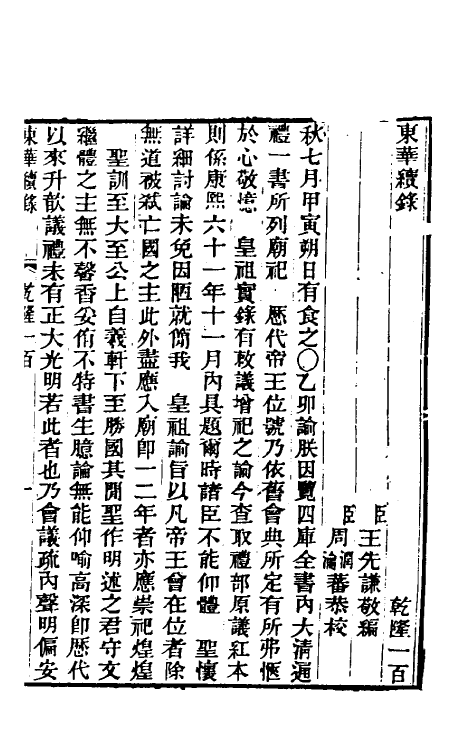 東華續錄 乾隆一百
臣王先謙敬編
臣周瀹蕃恭校
秋七月甲寅朔日有食之○乙卯諭朕因覽四庫全書內大清通
禮一書所列廟祀 歷代帝王位號乃依舊會典所定有所弗愜
於心敬憶 皇祖實錄有敕議增祀之諭今查取禮部原議紅本
則係康熙六十一年十一月內具題爾時諸臣不能仰體 聖懷
詳細討論未免因陋就簡我 皇祖諭旨以凡帝王曾在位者除
無道被弒亡國之主此外盡應入廟卽一二年者亦應崇祀煌煌
聖訓至大至公上自羲軒下至勝國其閒聖作明述之君守文
繼體之主無不馨香妥侑不特書生臆論無能仰喻高深卽歷代
以來升歆議禮未有正大光明若此者也乃會議疏內聲明偏安
東華續錄 乾隆一百 一